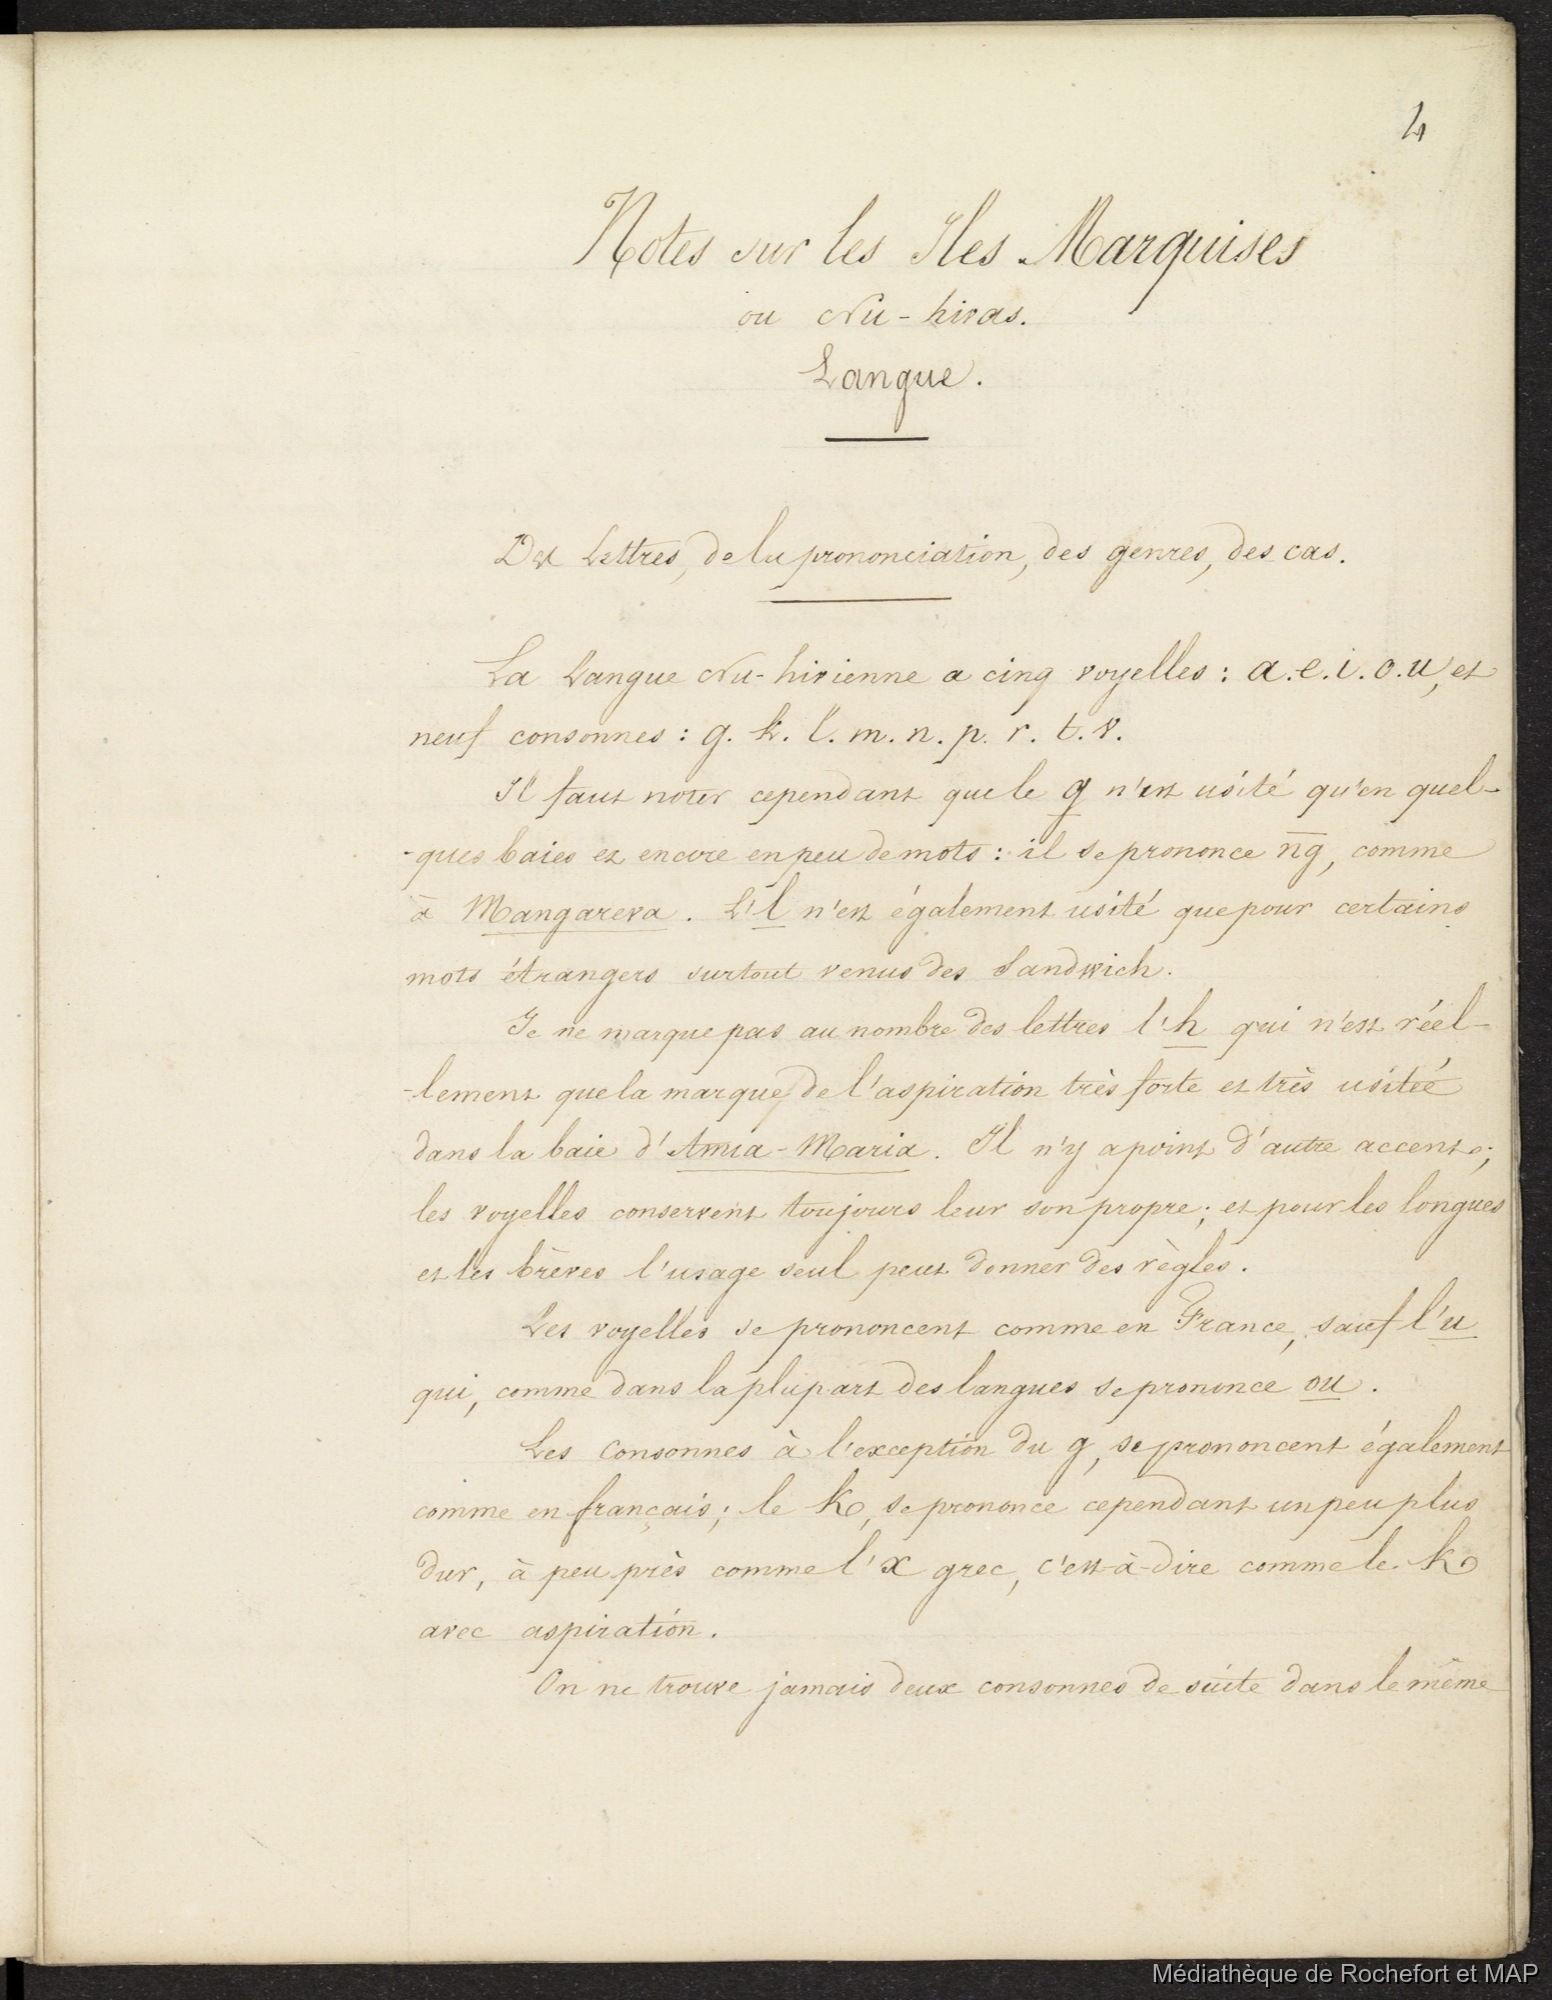 4
Notes sur les Iles Marquises
ou Nu-hivas.
Langue.
Des Lettres, de la prononciation, des genres, des cas.
La Langue Nu-hivienne a cinq voyelles : a. e. i. o. u, et
neuf consonnes : g. k. l. m. n. p. r. t. v.
Il faut noter cependant que le g n'est usité qu'en quel-
-ques baies et encore en peu de mots : il se prononce ng, comme
à Mangareva. L'l n'est également usité que pour certains
mots étrangers surtout venus des Sandwich.
Je ne marque pas au nombre des lettres l'h qui n'est réel-
-lement que la marque de l'aspiration très forte et très usitée
dans la baie d'Anna-Maria. Il n'y a point d'autre accents ;
les voyelles conservent toujours leur son propre ; et pour les longues
et les brèves l'usage seul peut donner des règles.
Les voyelles se prononcent comme en France, sauf l'u
qui, comme dans la plupart des langues se prononce ou.
Les Consonnes à l'exception du g, se prononcent également
comme en français ; le K, se prononce cependant un peu plus
dur, à peu près comme l'x grec, c'est-à-dire comme le k
avec aspiration.
On ne trouve jamais deux consonnes de suite dans le même
Médiathèque de Rochefort et MAP